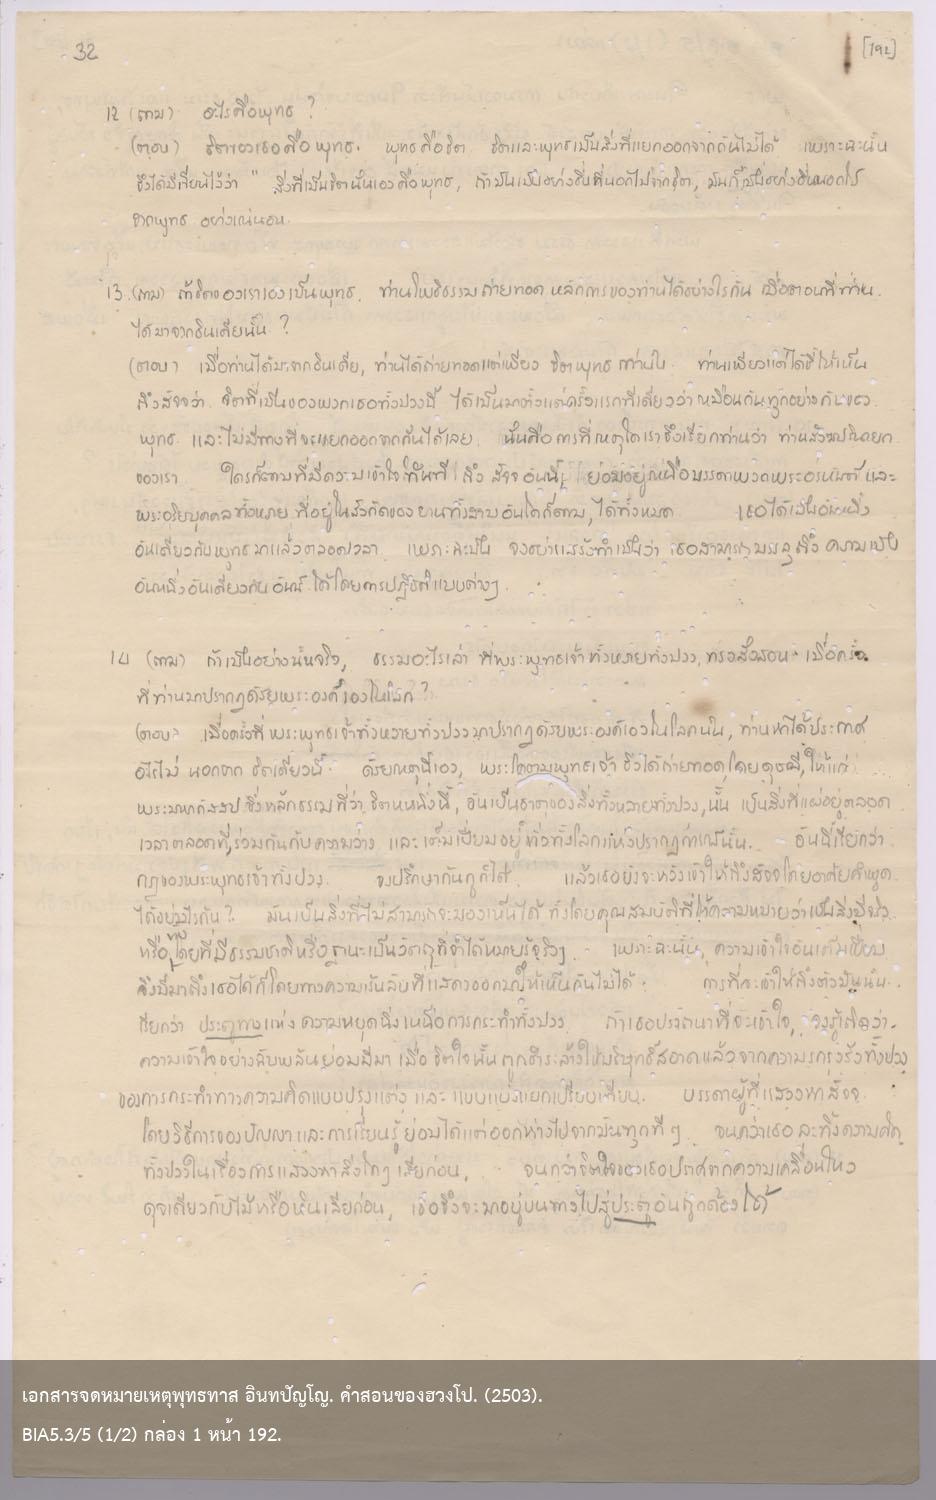 32
[192]
12 (ถาม) อะไรคือพุทธ ?
(ตอบ) จิตของเธอคือพุทธ. พุทธคือจิต จิตและพุทธเป็นสิ่งที่แยกออกจากกันไม่ได้ เพราะฉะนั้น
จึงได้มีเขียนไว้ว่า " สิ่งที่เป็นจิตนั้นเองคือพุทธ, ถ้ามันเป็นอย่างอื่นที่นอกไปจากจิต, มันก็เป็นอย่างอื่นนอกไป
จากพุทธ อย่างแน่นอน.
13. (ถาม) ถ้าจิตของเราเองเป็นพุทธ, ท่านโพธิธรรมถ่ายทอด หลักการของท่านได้อย่างไรกัน เมื่อตอนที่ท่าน
ได้มาจากอินเดียนั้น ?
(ตอบ) เมื่อท่านได้มาจากอินเดีย, ท่านได้ถ่ายทอดแต่เพียง จิตพุทธ เท่านั้น. ท่านเพียงแต่ได้ชี้ให้เห็น
ถึงสัจจว่า จิตที่เป็นของพวกเธอทั้งปวงนี้ ได้เป็นมาตั้งแต่ครั้งแรกทีเดียวว่า เหมือนกันทุกอย่างกับของ
พุทธ และไม่มีทางที่จะแยกออกจากกันได้เลย. นั้นคือการที่เหตุใดเราจึงเรียกท่านว่า ท่านสังฆปรินายก
ของเรา ใครก็ตามที่มีความเข้าใจทันที ถึง สัจจ อันนี้, ย่อมอยู่เหนือบรรดาพวกพระอรหันต์ และ
พระอริยบุคคลทั้งหลาย ที่อยู่ในสังกัดของยานทั้งสามอันใดก็ตาม, ได้ทั้งหมด เธอได้เป็นอันหนึ่ง
อันเดียวกับพุทธมาแล้วตลอดเวลา เพราะฉะนั้น จงอย่าแสร้งทำเป็นว่า เธอสามารถบรรลุถึง ความเป็น
อันหนึ่งอันเดียวกัน อันนี้ ได้โดยการปฏิบัติแบบต่างๆ.
14 (ถาม) ถ้าเป็นอย่างนั้นจริง, ธรรมอะไรเล่า ที่พระพุทธเจ้าทั้งหลายทั้งปวง, ทรงสั่งสอน เมื่อครั้ง
ที่ท่านมาปรากฏด้วยพระองค์เองในโลก ?
(ตอบ) เมื่อครั้งที่ พระพุทธเจ้าทั้งหลายทั้งปวงมาปรากฏด้วยพระองค์เองในโลกนั้น, ท่านหาได้ประกาศ
อะไรไม่ นอกจาก จิตเดียวนี้. ด้วยเหตุนี้เอง, พระโคตมพุทธเจ้า จึงได้ถ่ายทอด, โดยดุษณี, ให้แก่
พระมหากัสสป ซึ่งหลักธรรมที่ว่า จิตหนึ่งนี้, อันเป็นธาตุของสิ่งทั้งหลายทั้งปวง, นั้น เป็นสิ่งที่แผ่อยู่ตลอด
เวลา ตลอดที่, ร่วมกันกับความว่าง และ เต็มเปี่ยมอยู่ทั่วทั้งโลกแห่งปรากฏการณ์นั้น. อันนี้เรียกว่า
กฎของพระพุทธเจ้าทั้งปวง. จงปรึกษากันดูก็ได้ แล้วเธอยังจะหวังเข้าให้ถึงสัจจโดยอาศัยคำพูด
ได้อย่างไรกัน ? มันเป็นสิ่งที่ไม่สามารถจะมองเห็นได้ ทั้งโดยคุณสมบัติที่ให้ความหมายว่าเป็นสิ่งมีจริง
หรือทั้งโดยที่มีธรรมชาติหรือฐานะเป็นวัตถุที่จำได้หมายรู้จริงๆ. เพราะฉะนั้น, ความเข้าใจอันเต็มเปี่ยม
จึงมีมาถึงเธอได้ก็โดยทางความเร้นลับที่แสดงออกมาให้เห็นกันไม่ได้. การที่จะเข้าให้ถึงตัวมันนั้น
เรียกว่า ประตูทางแห่ง ความหยุดนิ่งเหนือการกระทำทั้งปวง ถ้าเธอปรารถนาที่จะเข้าใจ, จงรู้เถิดว่า
ความเข้าใจอย่างฉับพลันย่อมมีมา เมื่อ จิตใจนั้น ถูกชำระล้างให้บริสุทธิ์สอาดแล้วจากความรกรุงรังทั้งปวง
ของการกระทำทางความคิดแบบปรุงแต่ง และ แบบแบ่งแยกเปรียบเทียบ. บรรดาผู้ที่แสวงหาสัจจ
โดยวิธีการของปัญญาและการเรียนรู้ ย่อมได้แต่ออกห่างไปจากมันทุกที ๆ จนกว่าเธอ ละทิ้งความคิด
ทั้งปวงในเรื่องการแสวงหาสิ่งใดๆ เสียก่อน, จนกว่าจิตใจของเธอปราศจากความเคลื่อนไหว
ดุจเดียวกับไม้หรือหินเสียก่อน, เธอจึงจะมาอยู่บนทางไปสู่ประตูอันถูกต้องได้
เอกสารจดหมายเหตุพุทธทาส อินทปัญโญ. คำสอนของฮวงโป. (2503).
BIA5.3/5 (1/2) กล่อง 1 หน้า 192.